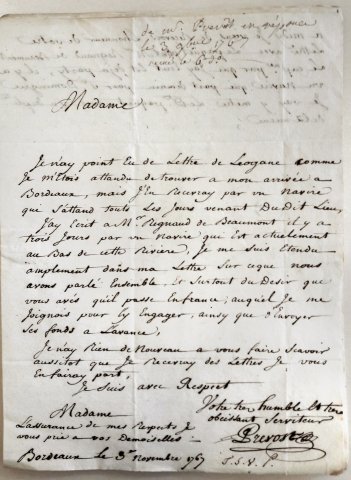 de Mr. Prevost en réponse
le 3 9bre 1767
Madame
Je n'ay point Eu de Lettre de Leogane comme
Je m'Etois attandu de trouver a mon arrivée a
Bordeaux, mais J'En Recevray par un Navire
que S'attand touts Les Jours venant Du Dit Lieu,
J'ay Ecrit a Mr. Regnaud de Beaumont il y a
trois Jours par un Navire qui Est actuelement
au Bas de cette Riviere, Je me suis Etendu
amplement dans ma Lettre Sur ceque nous
avons parlé Ensemble, Et Surtout du Desir que
vous avés qu'il passe En france, auquel Je me
Joignois pour l'y Engager, ainsy que d'envoyer
Ses fonds a L'avance;
Je n'ay Rien de Nouveau a vous faire Scavoir
aussitot que Je Recevray des Lettres Je vous
En fairay part,
Je Suis avec Respect
Madame
Votre tres humble Et tres
obeissant Serviteur
Prevost
L'assurance de mes Respects Je
vous prie a vos Demoiselles
Bordeaux le 3e Novembre 1767